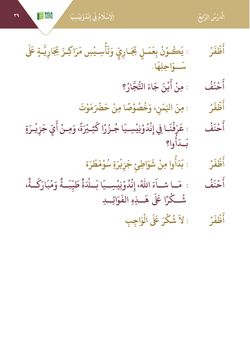 الدَّرْسُ الرَّابِعُ
الإِسْلَامُ فِي إِنْدُونِيْسِيَا
٢٩
أَظْفَرُ : يَكُوْنُ بِعَمَلٍ تِجَارِيٍّ وَتَأْسِيْسِ مَرَاكِزَ تِجَارِيَّةٍ عَلَى
سَوَاحِلِهَا
أَحْنَفُ : مِنْ أَيْنَ جَاءَ التُّجَّارُ؟
أَظْفَرُ : مِنَ اليَمَنِ، وَخُصُوْصًا مِنْ حَضْرَمَوْتَ
أَحْنَفُ : عَرَفْنَا فِي إِنْدُوْنِيْسِيَا جُزُرًا كَثِيْرَةً، وَمِنْ أَيِّ جَزِيْرَةٍ
بَدَأُوا؟
أَظْفَرُ : بَدَأُوا مِنْ شَوَاطِئِ جَزِيْرَةِ سُوْمَطْرَةَ
أَحْنَفُ : مَا شَاءَ اللهُ، إِنْدُوْنِيْسِيَا بَلْدَةٌ طَيِّبَةٌ وَمُبَارَكَةٌ،
شُكْرًا عَلَى هَذِهِ الفَوَائِدِ
أَظْفَرُ : لاَ شُكْرَ عَلَى الْوَاجِبِ